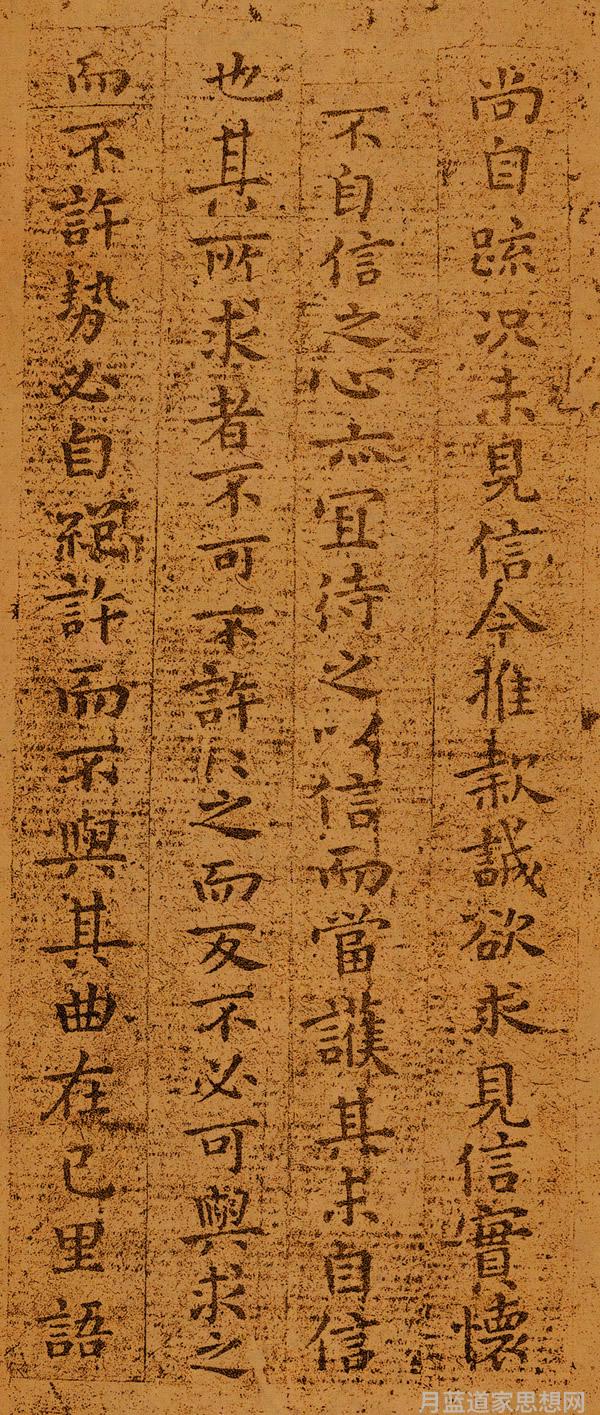 尚自疏况未見信今推款誠欲求見信實懷
不自信之心亦宜待之以信而當護其未自信
也其所求者不可不許許之而反不必可與求之
而不許勢必自絕許而不與其曲在己里語
月蓝道家思想网